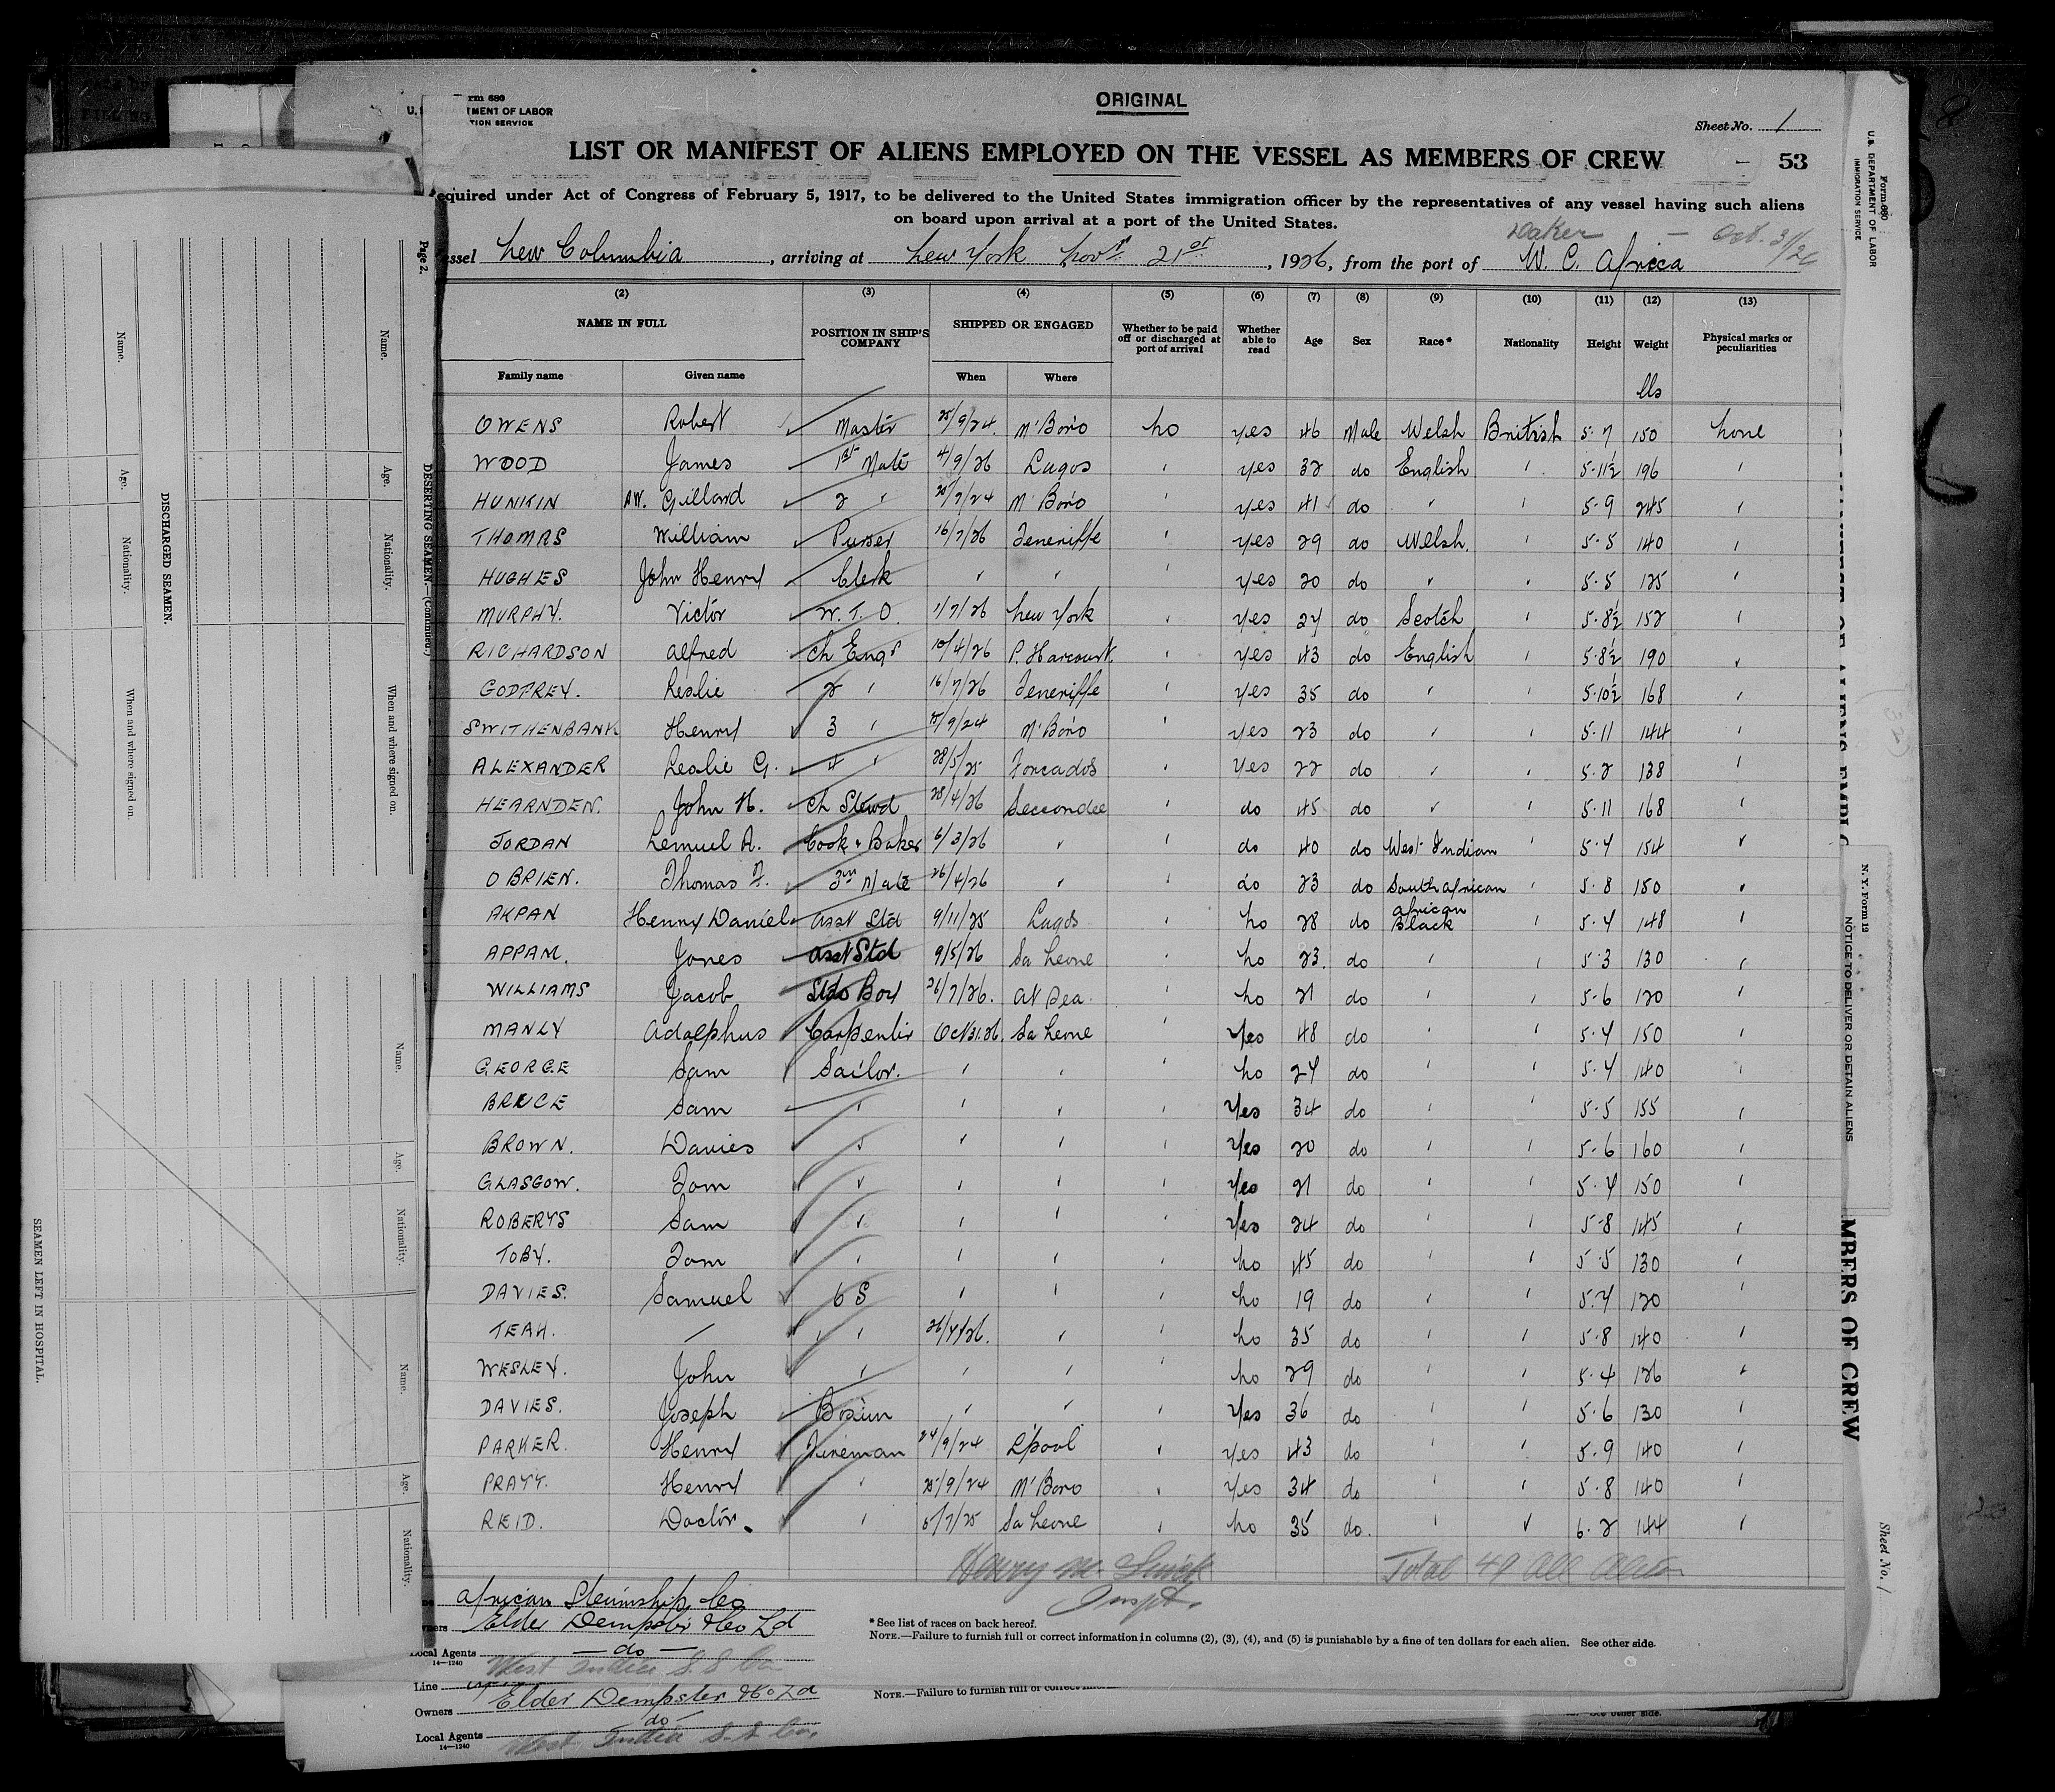 ORIGINAL
Form 680
U. S. DEPARTMENT OF LABOR
IMMIGRATION SERVICE
Sheet No. 1
LIST OR MANIFEST OF ALIENS EMPLOYED ON THE VESSEL AS MEMBERS OF CREW 53
equired under Act of Congress of February 5, 1917, to be delivered to the United States immigration officer by the representatives of any vessel having such aliens
on board upon arrival at a port of the United States.
Dakar — Oct. 31/26
essel New Columbia, arriving at New York Novr. 21st, 1926, from the port of W. C. Africa
(2) (3) (4) (5) (6) (7) (8) (9) (10) (11) (12) (13)
NAME IN FULL POSITION IN SHIP'S COMPANY SHIPPED OR ENGAGED Whether to be paid off or discharged at port of arrival Whether able to read Age Sex Race* Nationality Height Weight Physical marks or peculiarities
Family name Given name When Where
lls
OWENS Robert Master 25/9/24. M'Boro No Yes 46 Male Welsh British 5.7 150 None
WOOD James 1st Mate 4/9/26 Lagos ' Yes 32 do English ' 5.11½ 196 '
HUNKIN AW. Gillard 2 ' 25/9/24 M'Boro ' Yes 41 do ' ' 5.9 245 '
THOMAS William Purser 16/7/26 Teneriffe ' Yes 29 do Welsh. ' 5.5 140 '
HUGHES John Henry Clerk ' ' ' Yes 20 do ' ' 5.5 125 '
MURPHY. Victor W.T.O. 1/7/26 New York ' Yes 24 do Scotch ' 5.8½ 152 '
RICHARDSON Alfred Ch Engr 10/4/26 P. Harcourt. ' Yes 43 do English ' 5.8½ 190 '
GODFREY. Leslie 2 ' 16/7/26 Teneriffe ' Yes 35 do ' ' 5.10½ 168 '
SWITHENBANK Henry 3 ' 25/9/24 M'Boro ' Yes 23 do ' ' 5.11 144 '
ALEXANDER Leslie G. 4 ' 28/5/25 Forcados ' Yes 22 do ' ' 5.2 138 '
HEARNDEN. John H. Ch Stewd 28/4/26 Seccondee ' do 45 do ' ' 5.11 168 '
JORDAN Lemuel A. Cook & Baker 6/3/26 ' ' do 40 do West Indian ' 5.4 154 '
OBRIEN. Thomas F. 3rd Mate 26/4/26 ' ' do 23 do South African ' 5.8 150 '
AKPAN Henry Daniel Asst Std 9/11/25 Lagos ' No 28 do African Black ' 5.4 148 '
APPAM. Jones Asst Std 9/5/26 Sa Leone ' No 23. do ' ' 5.3 130 '
WILLIAMS Jacob Stds Boy 26/7/26. At Sea ' No 21 do ' ' 5.6 120 '
MANLY Adolphus Carpenter Oct 31.26. Sa Leone ' Yes 48 do ' ' 5.4 150 '
GEORGE Sam Sailor. ' ' ' No 24 do ' ' 5.4 140 '
BRUCE Sam ' ' ' ' Yes 34 do ' ' 5.5 155 '
BROWN. Davies ' ' ' ' Yes 20 do ' ' 5.6 160 '
GLASGOW. Tom ' ' ' ' Yes 21 do ' ' 5.4 150 '
ROBERTS Sam ' ' ' ' Yes 24 do ' ' 5.8 145 '
TOBY. Tom ' ' ' ' No 45 do ' ' 5.5 130 '
DAVIES. Samuel ' ' ' No 19 do ' ' 5.4 120 '
TEAH. — ' ' ' ' No 35 do ' ' 5.8 140 '
WESLEY. John ' ' ' ' No 29 do ' ' 5.4 126 '
DAVIES. Joseph Bosun ' ' ' Yes 36 do ' ' 5.6 130 '
PARKER. Henry Fireman 24/9/24 L'pool ' Yes 43 do ' ' 5.9 140 '
PRATT. Henry ' 25/9/24 M'Boro ' Yes 34 do ' ' 5.8 140 '
REID. Doctor. ' 5/7/25 Sa Leone ' No 35 do. ' ' 6.2 144 '
Henry M.
Inspt.
Total 49 All
African Steamship Co
wners Elder Dempster & Co Ld
ocal Agents — do —
14—1240
West India S. S. Co
* See list of races on back hereof.
NOTE.—Failure to furnish full or correct information in columns (2), (3), (4), and (5) is punishable by a fine of ten dollars for each alien. See other side.
Line
Owners Elder Dempster & Co Ld
do
Local Agents West India S. S. Co.
14—1240
NOTE.—Failure to furnish full or correct
See other side.
Page 2.
DESERTING SEAMEN.—(Continued.)
Name. Age. Nationality. When and where signed on.
DISCHARGED SEAMEN.
Name. Age. Nationality. When and where signed on.
Name. Age. Nationality.
SEAMEN LEFT IN HOSPITAL.
Name. Age. Nationality.
Form 680
U.S. DEPARTMENT OF LABOR
IMMIGRATION SERVICE
N. Y. Form 12
NOTICE TO DELIVER OR DETAIN ALIENS
MBERS OF CREW
Sheet No. 1